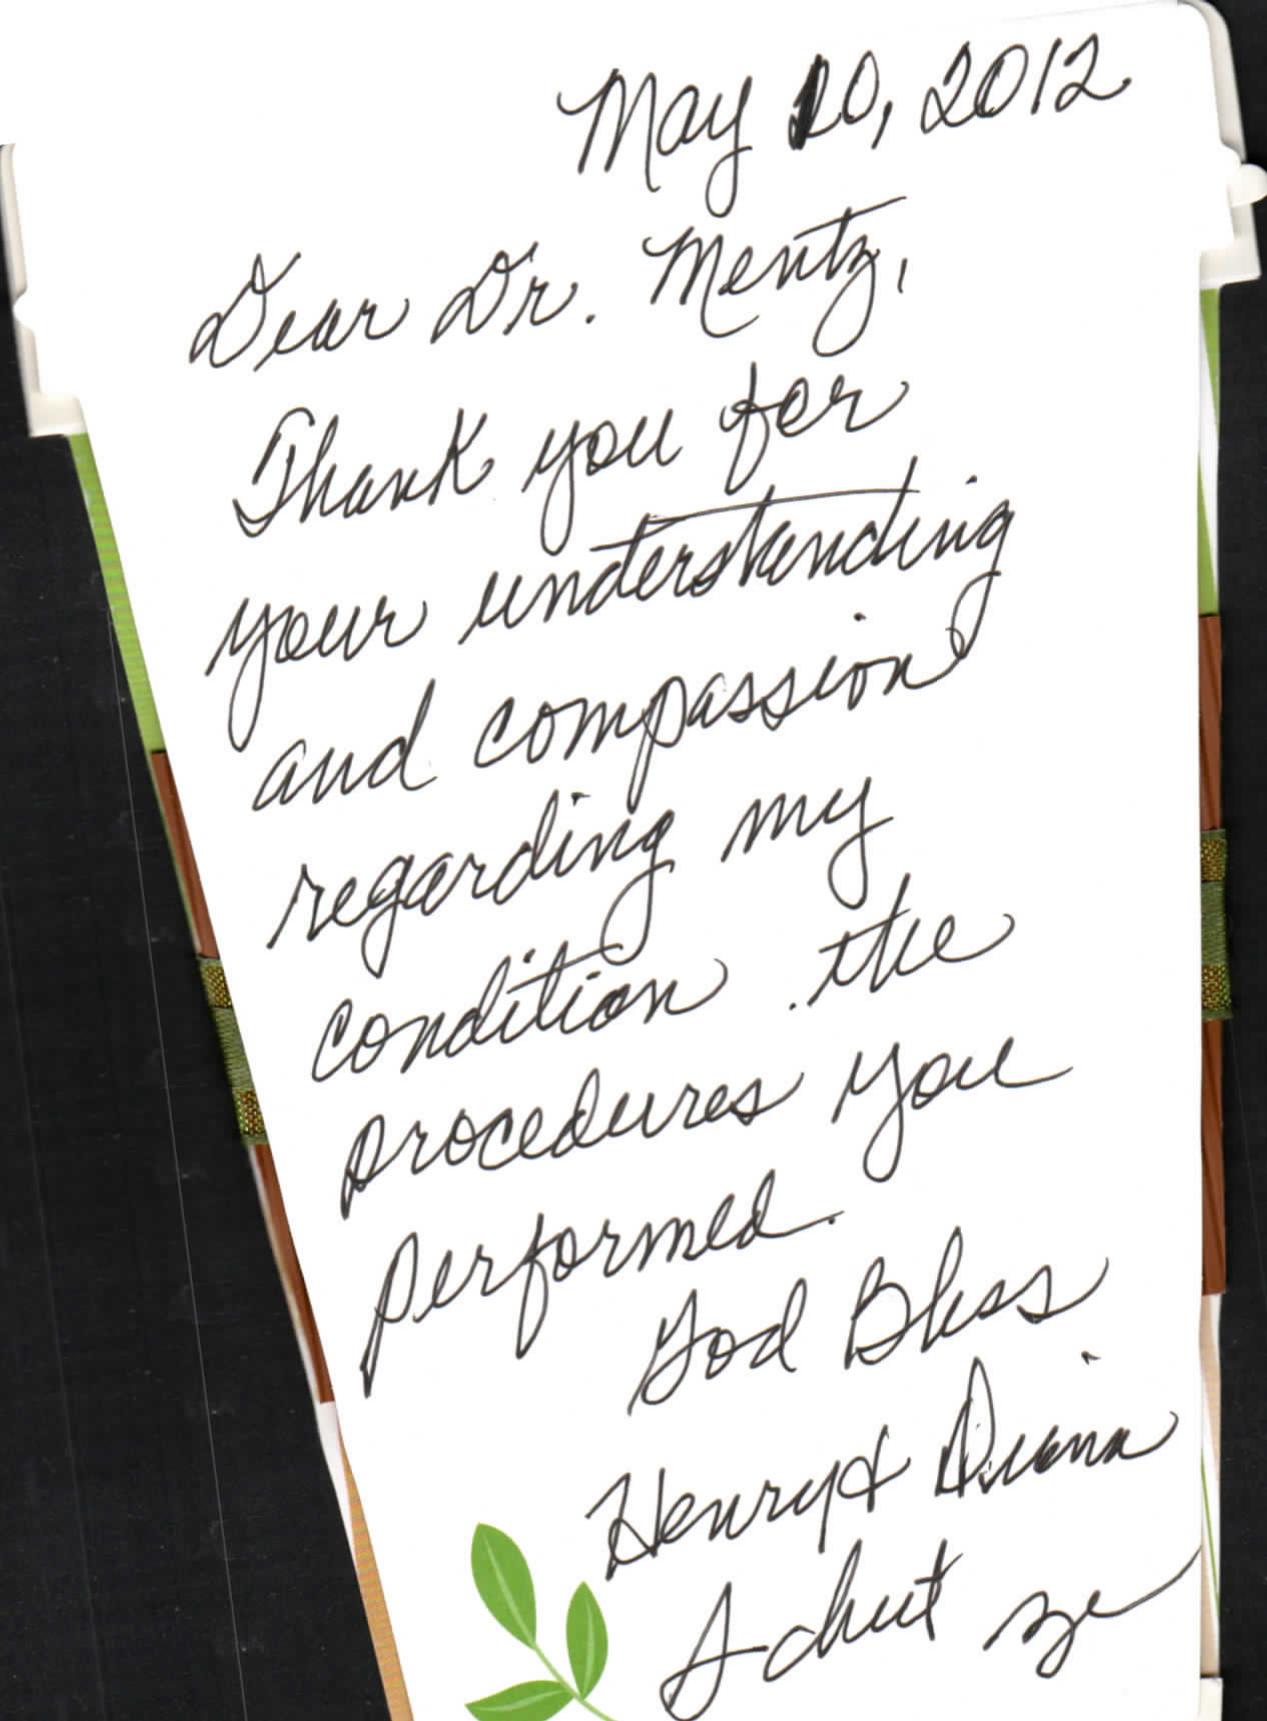 May 10, 2012
Dear Dr. Mentz,
Thank you for
your understanding
and compassion
regarding my
condition . the
procedures you
performed.
God Bless
Henry & Diana
Schut ze